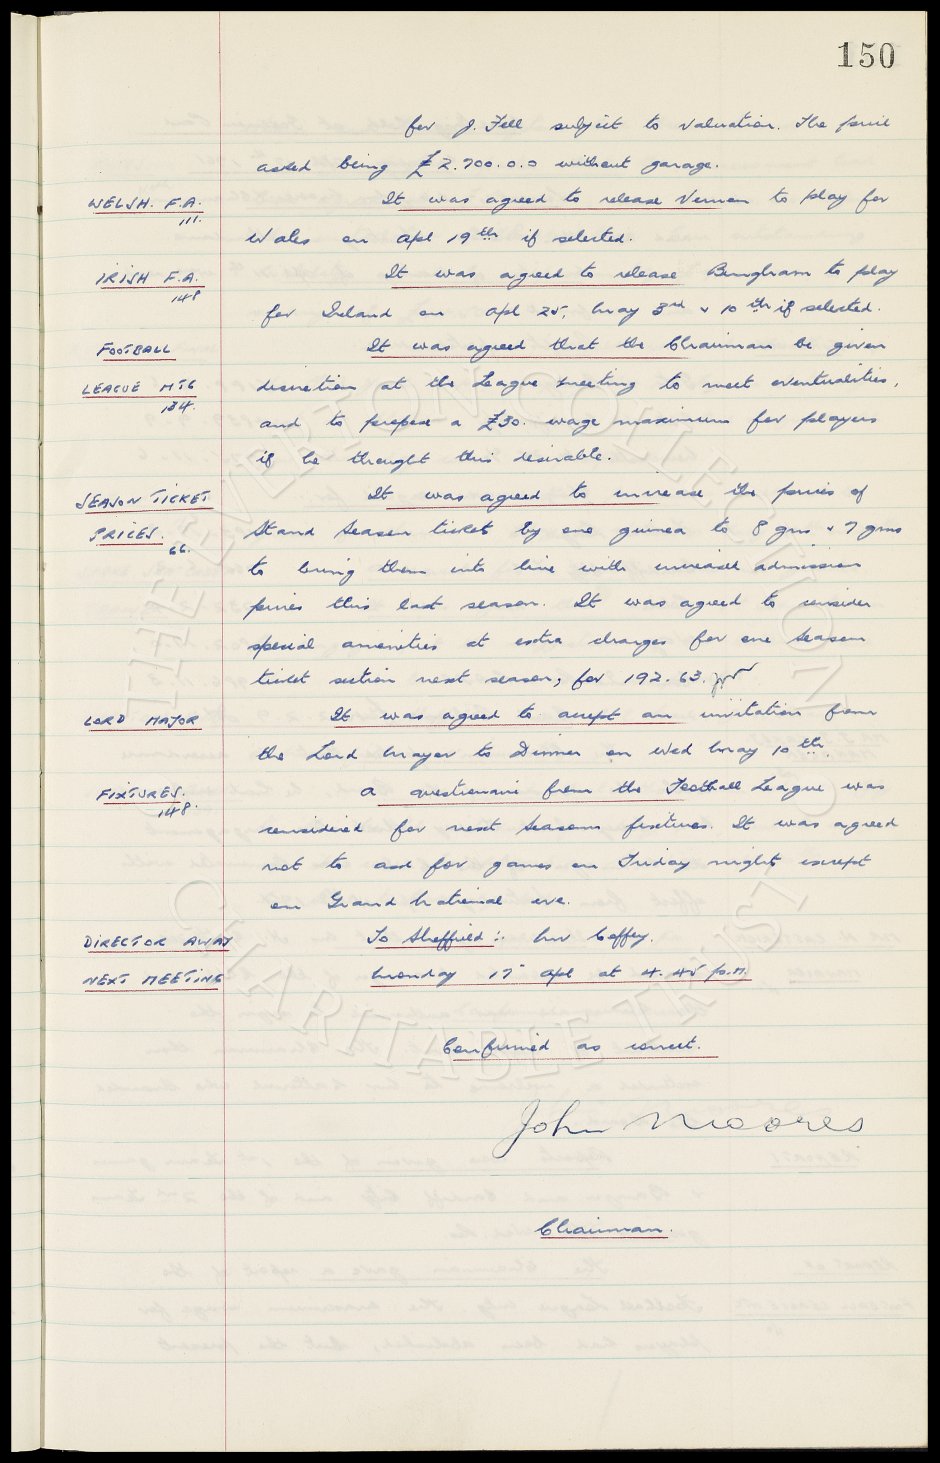 150
for J. Fell subject to valuation. The price
asked being £2.700.0.0 without garage.
WELSH. F.A. It was agreed to release Vernon to play for
111.
Wales on Apl 19th if selected.
IRISH F.A. It was agreed to release Bingham to play
148
for Ireland on Apl 25, May 3rd & 10th if selected.
FOOTBALL It was agreed that the Chairman be given
LEAGUE MTG discretion at the League meeting to meet eventualities,
134.
and to propose a £30. wage maximum for players
if he thought this desirable.
SEASON TICKET It was agreed to increase the prices of
PRICES. Stand Season ticket by one guinea to 8 gns & 7 gns
66.
to bring them into line with increased admission
prices this last season. It was agreed to consider
special amenities at extra charges for one Season
ticket section next season, for 192.63.
LORD MAJOR It was agreed to accept an invitation from
the Lord Mayor to Dinner on Wed May 10th.
FIXTURES. A questionaire from the Football League was
148.
considered for next Seasons fixtures. It was agreed
not to ask for games on Friday nights except
on Grand National eve.
DIRECTOR AWAY To Sheffield:- Mr Coffey.
NEXT MEETING Monday 17" Apl at 4.45 p.m.
Confirmed as correct.
John Moores
Chairman.
THE EVERTON COLLECTION
CHARITABLE TRUST